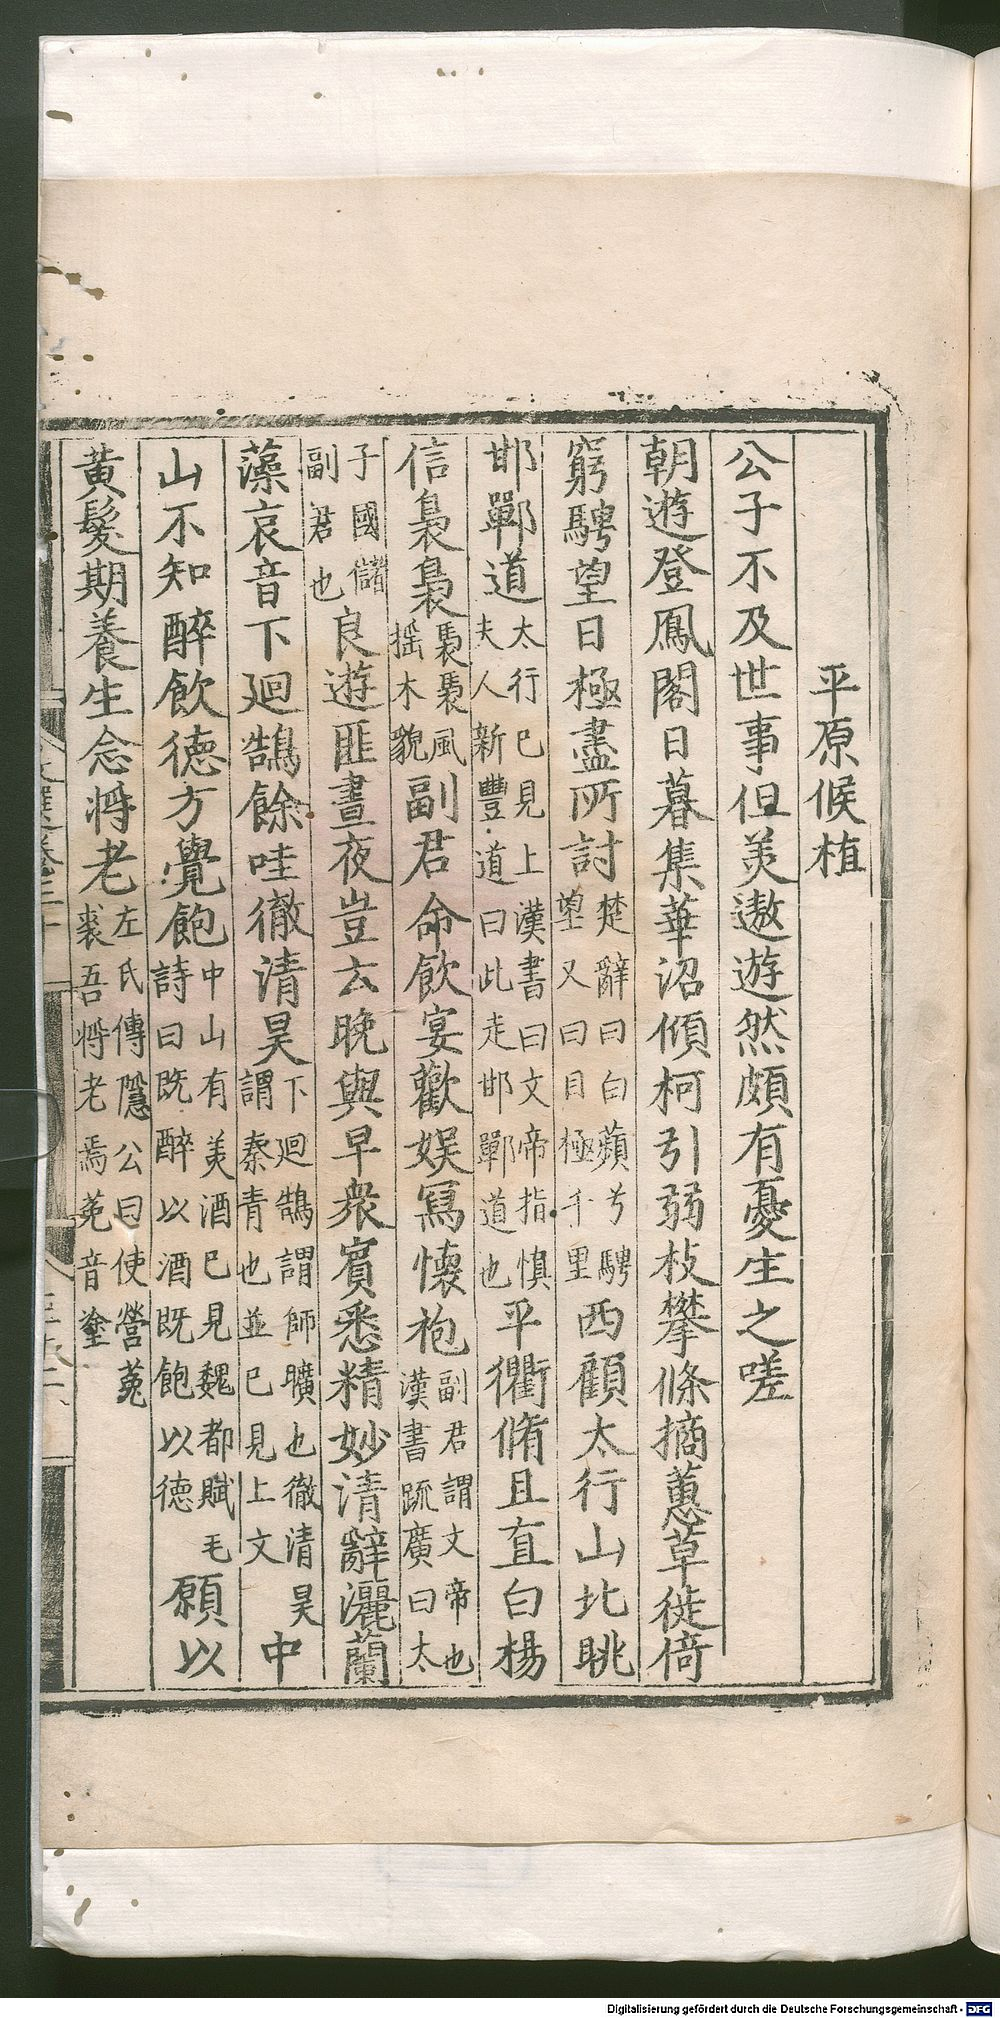 平原侯植
公子不及世事但美遨遊然頗有憂生之嗟
朝遊登鳳閣日暮集華沼傾柯引弱枝攀條摘蕙草徙倚
窮騁望目極盡所討楚辭曰白蘋兮騁望又曰目極千里西顧太行山北眺
邯鄲道太行已見上漢書曰文帝指慎夫人新豐道曰此走邯鄲道也平衢脩且直白楊
信裊裊裊裊風搖木貌副君命飲宴歡娛寫懷抱副君謂文帝也漢書疏廣曰太
子國儲副君也良遊匪晝夜豈云晚與早衆賓悉精妙清辭灑蘭
藻哀音下迴鵠餘哇徹清昊下迴鵠謂師曠也徹清昊謂秦青也並已見上文中
山不知醉飲德方覺飽中山有美酒已見魏都賦毛詩曰既醉以酒既飽以德願以
黃髮期養生念將老左氏傳隱公曰使營菟裘吾將老焉菟音塗
Digitalisierung gefördert durch die Deutsche Forschungsgemeinschaft - DFG